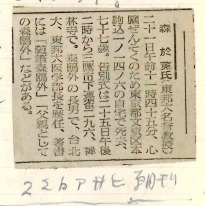 森 於菟氏(東邦大名誉教授)
二十一日午前十一時四十五分、心
臓ぜんそくのため東京都文京区本
駒込一ノ一四ノ六の自宅で死去、
七十七歳。告別式は二十五日午後
二時から三鷹市下連雀二九六、禅
林寺で。森鷗外の長男で、台北
大、東邦大医学部長を歴任。著書
には「随筆森鷗外」「父親として
の森鷗外」などがある。
アサヒ 朝刊